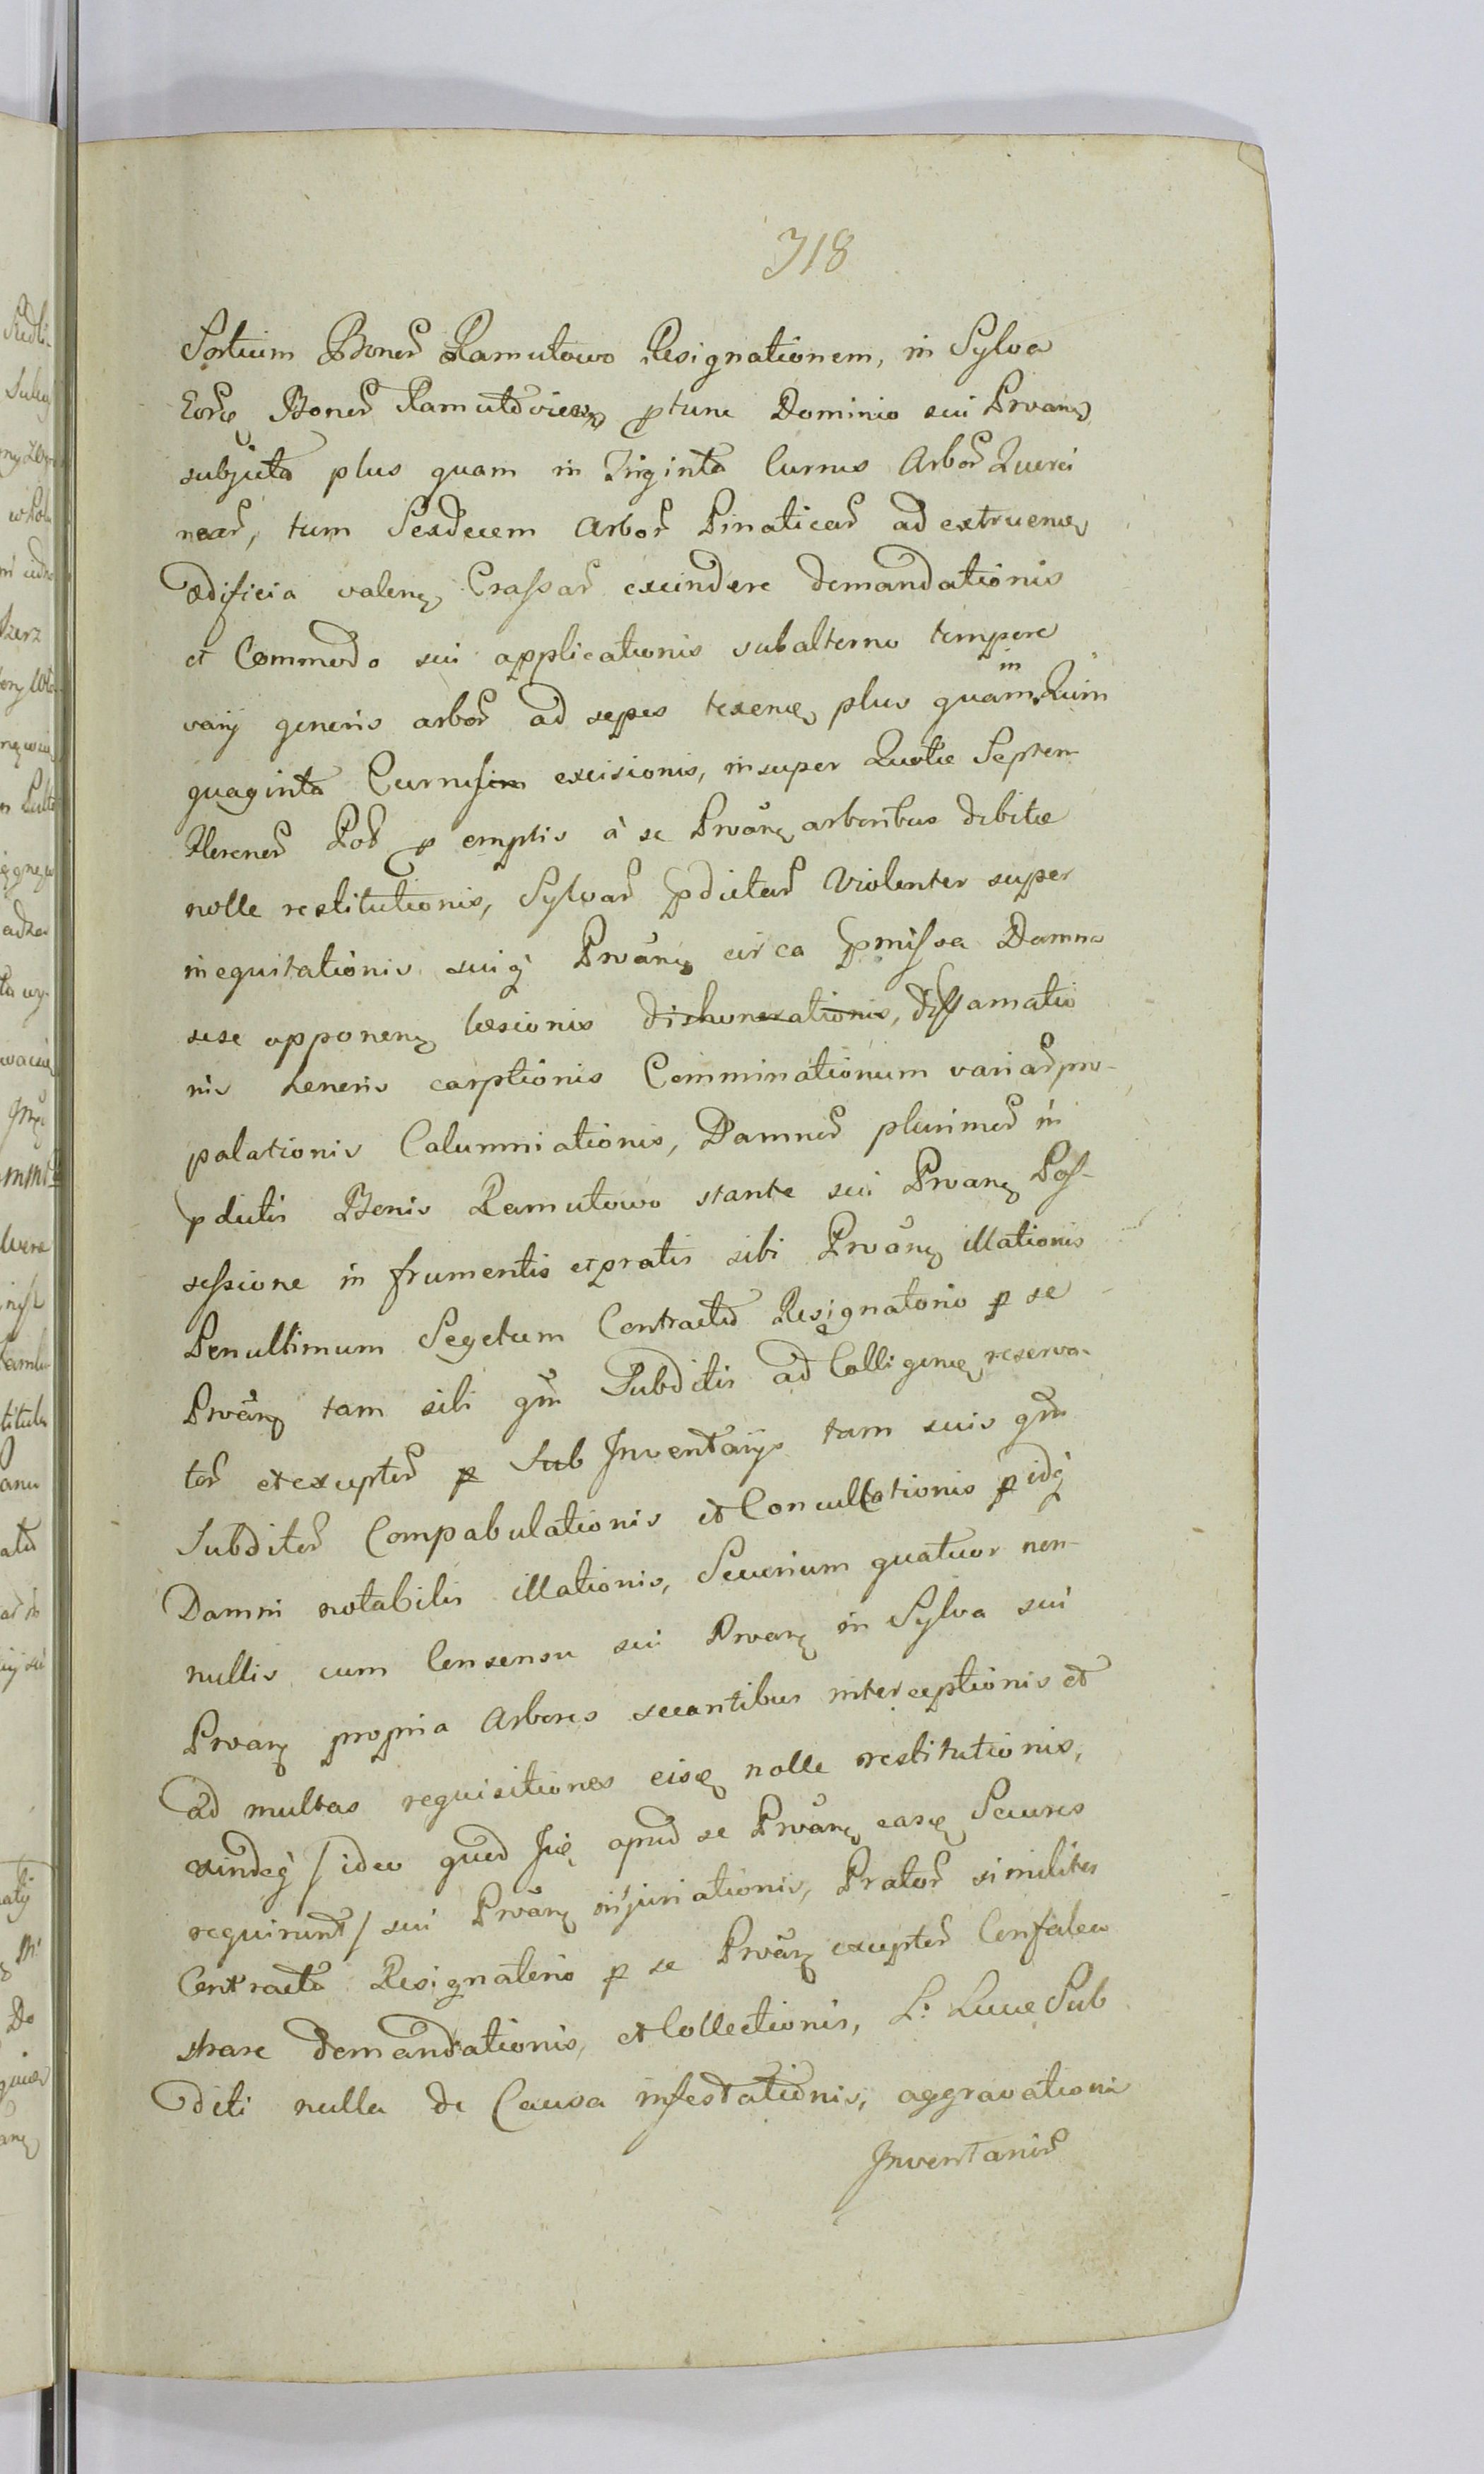 318
Sortium Bonoȓ Ramutowo Resignationem, in Sylva
Eorū Bonoȓ Ramutoviens ptunc Dominio sui Prvang
subjecta plus quam in Triginta Currus Arboȓ Querci
nearȓ, tum Sexdecem Arboȓ Pinaticarȓ ad extruen
ædificia valen Crassarȓ excindere demandationis
et Commodo sui applicationis subalterno tempore
in
varij generis arboȓ ad sepes texen plus quam Quin
quaginta Currus excisionis, insuper Quotæ Septem
Florenoȓ Pol p emptis à se Prvang arboribus debitæ
nolle restitutionis, Sylvarȓ pdictarȓ Violenter super
inequitationis suiq Prvang circa pmissa Damna
sese opponen læsionis dishonorationis, diffamatio
nis honoris carptionis Comminationum variarȓ pro-
palationis Calumniationis, Damnoȓ plurimoȓ in
pdictis Bonis Ramutowo stante sui Prvang Pos-
sessione in frumentis et pratis sibi Prvang illationis
Penultimum Segetum Contractu Resignatorio p se
Prvang tam sibi qm Subditis ad Colligen reserva-
toȓ et exceptoȓ p Sub Inventarijs tam suis qm
Subditoȓ Compabulationis et Conculcationis p idq
Damni notabilis illationis, Securium quatuor non-
nullis cum Consensu sui Prvang in Sylva sui
Prvang propria Arbores secantibus interceptionis et
ad multas requisitiones eisd nolle restitutionis,
exindeq / ideo quod apud se Prvang easd Secures
requirunt / sui Prvang injuriationis, Pratoȓ similiter
Contractu Resignatorio p se Prvang exceptoȓ Confalca
strare demandationis, et Collectionis, L: Lucæ Sub
diti nulla de Causa infestationis, aggravationis
Inventarioȓ